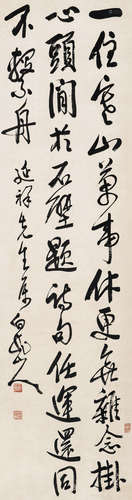 一住寒山萬事休更無雜念掛
心頭閒於石壁題詩句任運還同
不繫舟
延祥先生屬 白龍山人